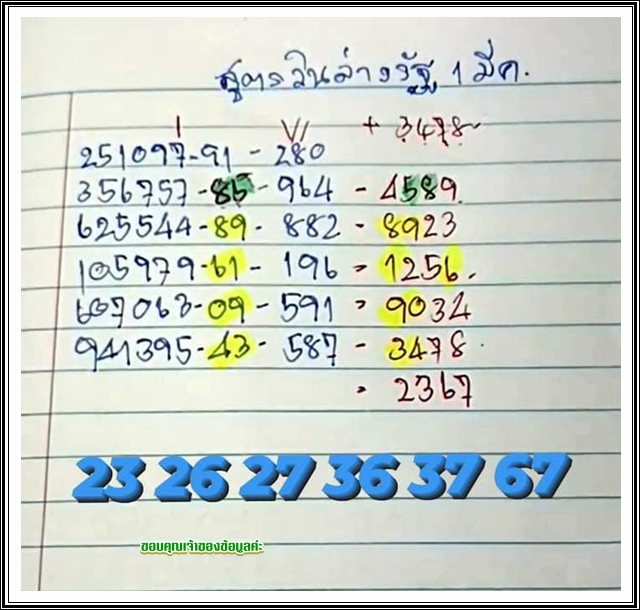 สูตรวินล่างรัฐ 1 มีค.
+ 3478
251097-91 - 280
356757-85-964 - 4589
625544-89-882-8923
105979-61-196 = 1256.
607063-09-591 = 9034
941395-43-587 - 3478.
= 2367
23 26 27 36 37 67
ขอบคุณเจ้าของข้อมูลค่ะ